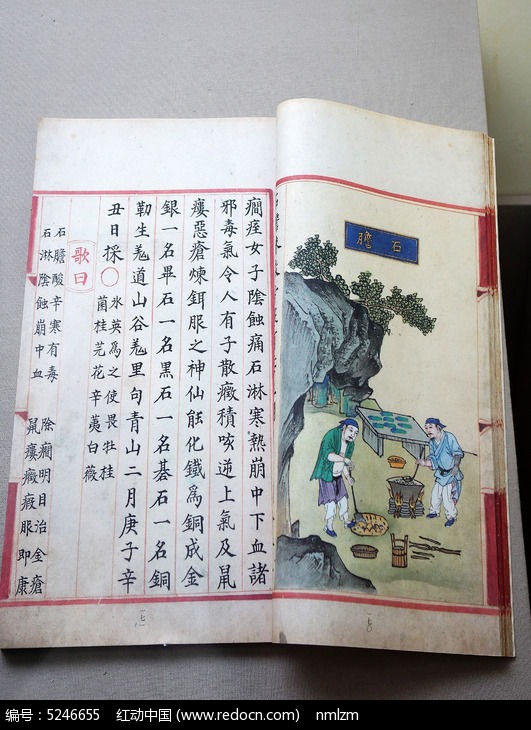 石膽
癎痓女子陰蝕痛石淋寒熱崩中下血諸
邪毒氣令人有子散癥積咳逆上氣及鼠
瘻惡瘡煉餌服之神仙能化鐵為銅成金
銀一名畢石一名黑石一名棊石一名銅
勒生羌道山谷羌里句青山二月庚子辛
丑日採〇水英為之使畏牡桂
菌桂芫花辛夷白薇
歌曰
石膽酸辛寒有毒 除癎明目治金瘡
石淋陰蝕崩中血 鼠瘻癥瘕服即康
编号：5246655 红动中国 (www.redocn.com) nmlzm